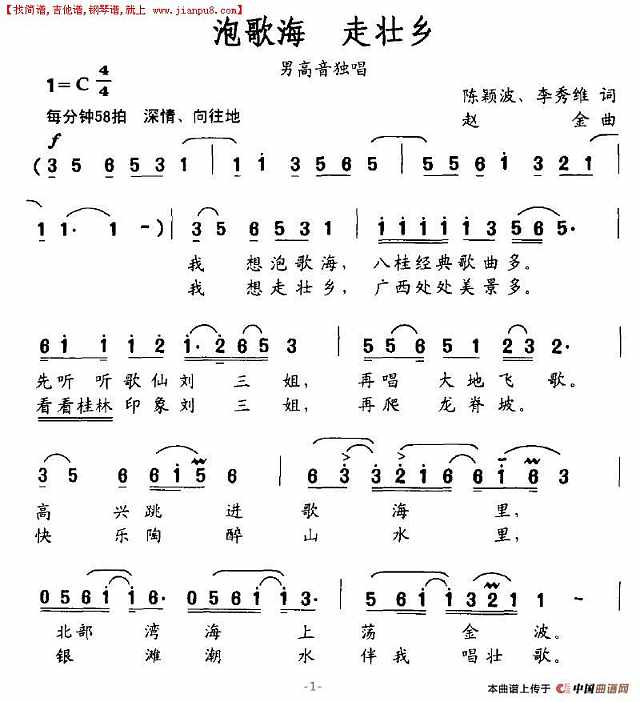 【找简谱,吉他谱,钢琴谱,就上 www.jianpu8.com】
泡歌海 走壮乡
男高音独唱
1=C 4/4
陈颖波、李秀维 词
每分钟58拍 深情、向往地
赵 金 曲
f
(3 5 6 5 3 1 | 1 1 3 5 6 5 | 5 5 6 1 3 2 1 |
1 1· 1 -) | 3 5 6 5 3 1 | 1 1 1 1 1 3 5 6 5· |
我 想 泡 歌 海, 八 桂 经 典 歌 曲 多。
我 想 走 壮 乡, 广 西 处 处 美 景 多。
6 1 1 2 1 2 1· 2 6 5 3 | 3 5 6 5 1 2 3 2· |
先 听 听 歌 仙 刘 三 姐, 再 唱 大 地 飞 歌。
看 看 桂 林 印 象 刘 三 姐, 再 爬 龙 脊 坡。
3 5 6 6 1 5 6 | 6 3 3 3 2 1 6 6 1 6 3 |
高 兴 跳 进 歌 海 里,
快 乐 陶 醉 山 水 里,
0 5 6 1 1 1 3· 0 5 6 1 1 1 3· | 5 6 1 1 3 2 1 1 |
北 部 湾 海 上 荡 金 波。
银 滩 潮 水 伴 我 唱 壮 歌。
-1-
本曲谱上传于 中国曲谱网